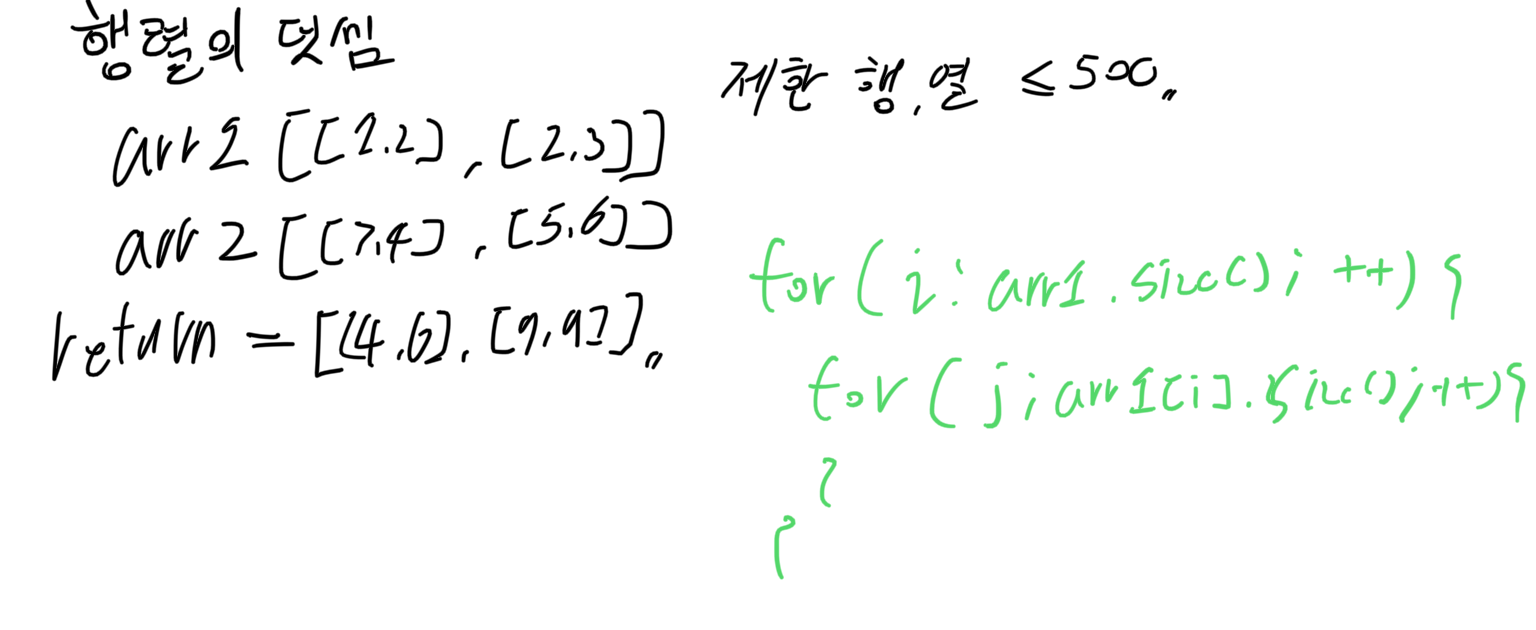 행렬의 덧셈
arr1 [[1.2], [2.3]]
arr2 [[3.4], [5.6]]
return = [[4.6], [7.9]]〃
제한 행,열 ≤500〃
for (i : arr1.size() ; ++) {
for ( j ; arr1[i].size() ; ++) {
}
}